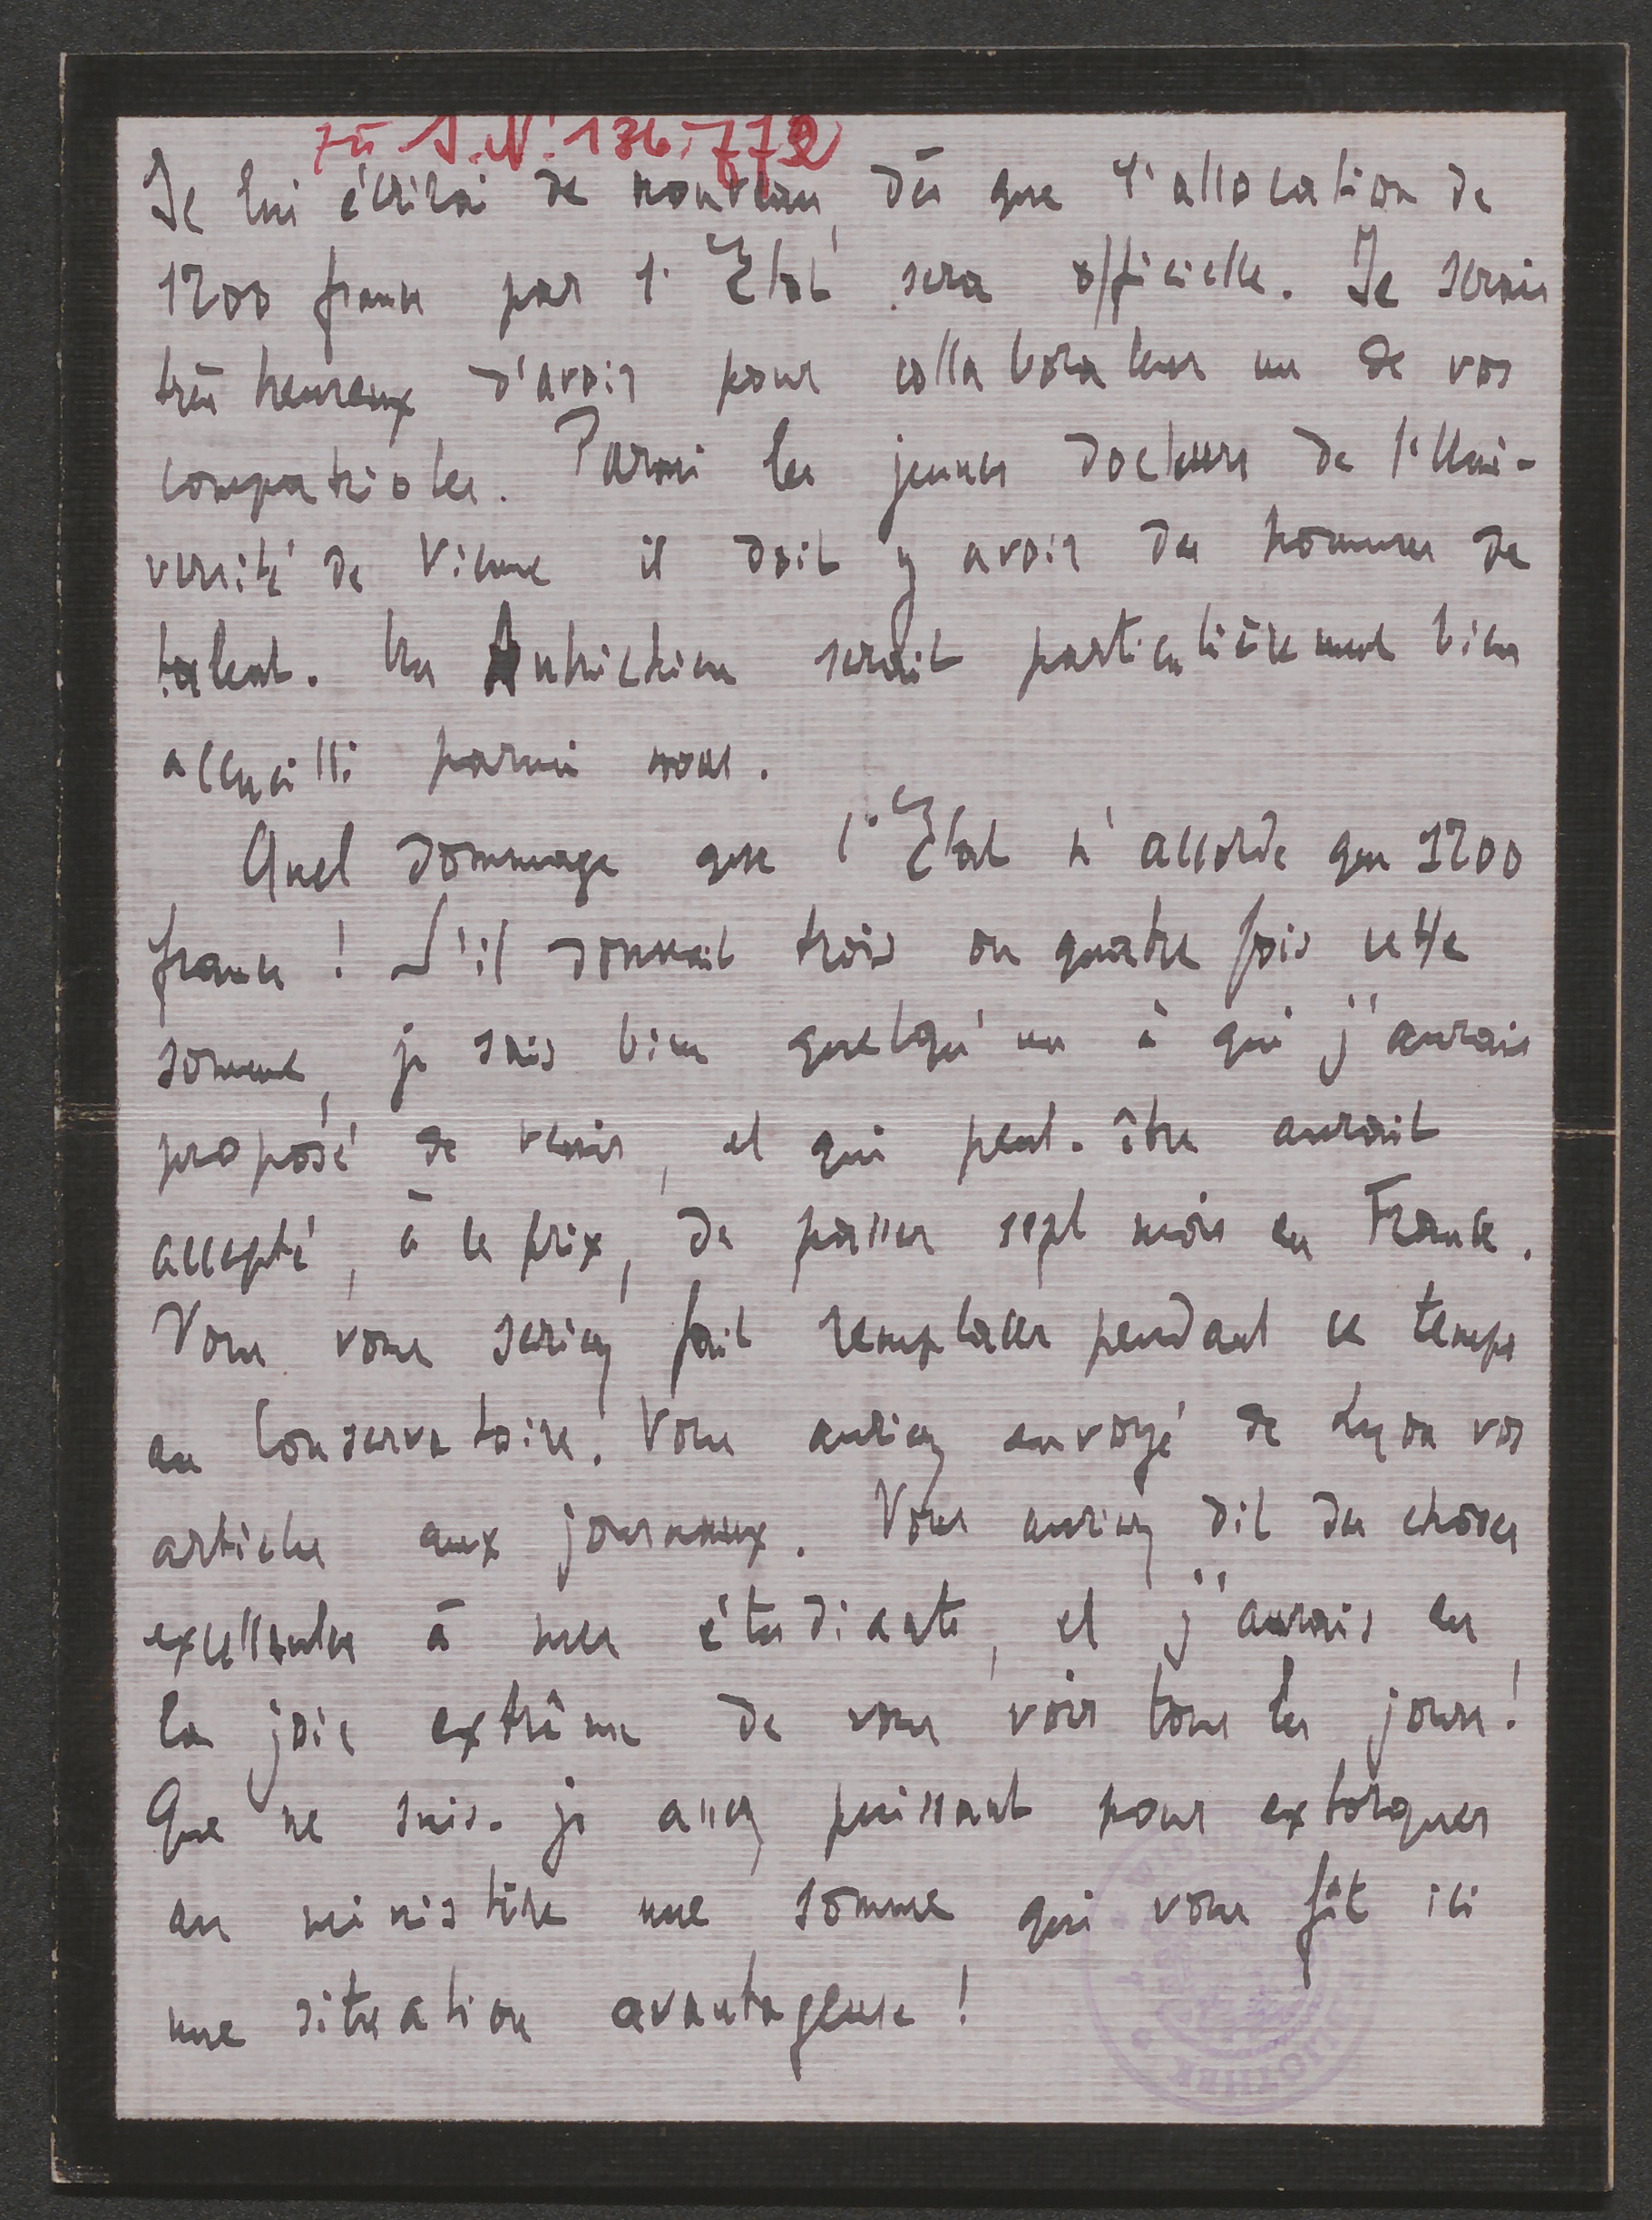 zu I.N. 136.772
Je lui écrirai de nouveau, dès que l'allocation de
1200 francs par l'État sera officielle. Je serais
très heureux d'avoir pour collaborateur un de vos
compatriotes. Parmi les jeunes docteurs de l'Uni-
versité de Vienne il doit y avoir des hommes de
talent. Un Autrichien serait particulièrement bien
accueilli parmi nous.
Quel dommage que l'État n'accorde que 1200
francs ! S'il donnait trois ou quatre fois cette
somme, je sais bien quelqu'un à qui j'aurais
proposé de venir, et qui peut-être aurait
accepté, à ce prix, de passer sept mois en France.
Vous vous seriez fait remplacer pendant ce temps
au Conservatoire. Vous auriez envoyé de Lyon vos
articles aux journaux. Vous auriez dit des choses
excellentes à mes étudiants, et j'aurais eu
la joie extrême de vous voir tous les jours !
Que ne suis-je assez puissant pour extorquer
au ministère une somme qui vous fît ici
une situation avantageuse !